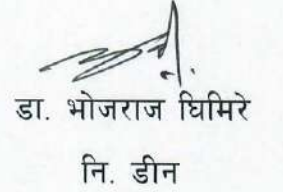 डा. भोजराज घिमिरे
नि. डीन